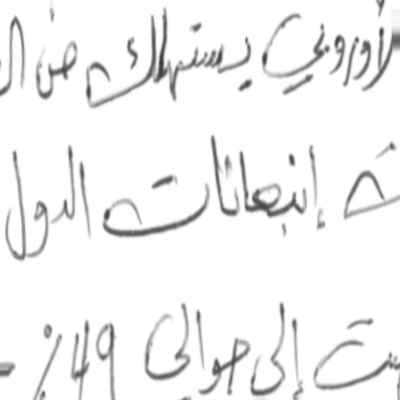 لأوروبي يستهلك من ال
إنبعاثات الدول
ت إلى حوالي 49٪ -